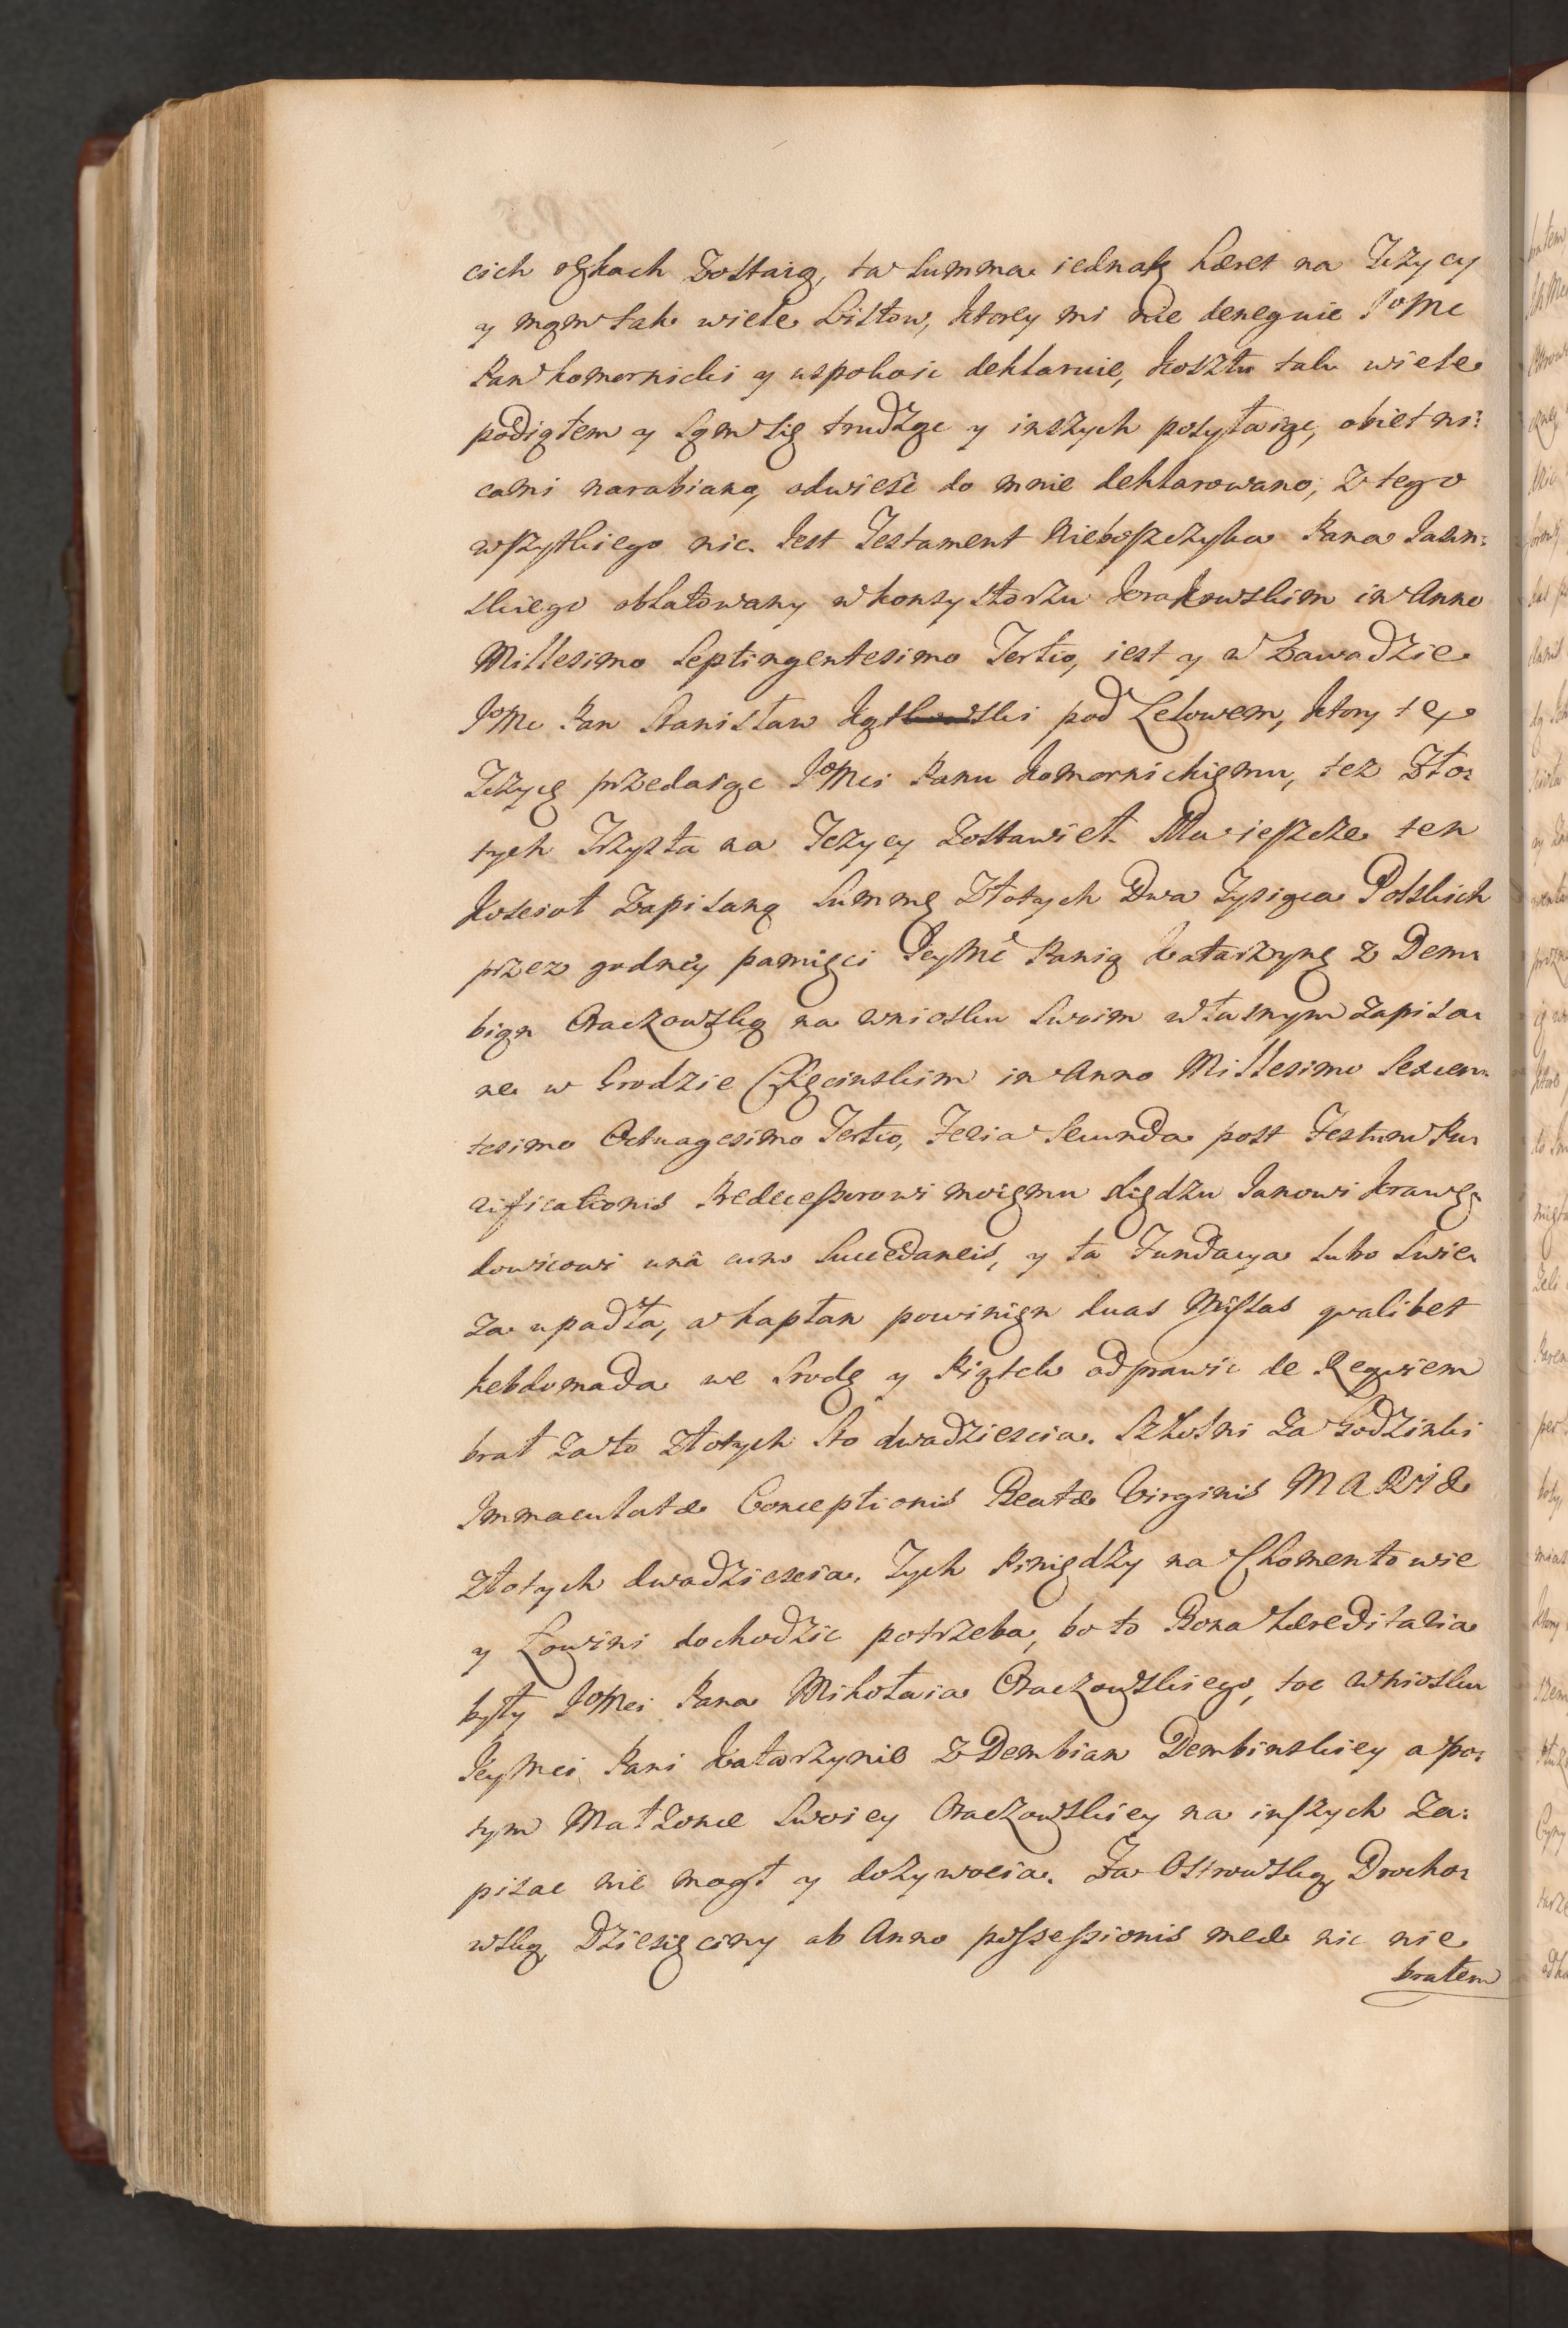 cich rękach Zostaią, ta Summa iednak hæret na Jeżycy
y mąm tak wiele Listow, ktorey mi nie deneguie JoMc
Pan komornicki y uspokoic deklaruie, kosztu tak wiele
podiąłem y sąm się trudząc y inszych posyłaiąc, obietni:
cami narabianą, odwieść do mnie deklarowano, z tego
wszystkiego nic. Jest Testament Nieboszczyka Pana Jasin:
skiego oblatowany w konsystorzu krakowskim in Anno
Millesimo Septingentesimo Tertio, iest y w Zawadzie
JoMc Pan Stanisław pod Lelowem, ktory tę
Jeżycę przedaiąc JoMci Panu komornickięmu, tez Zło:
tych Trzysta na Jeżycy Zostawieł. Ma ieszcze ten
koscioł Zapisaną Summę Złotych Dwa Tysiąca Polskich
przez godney pamięci JeyMć Panią katarzynę z Dem:
bian Oraczowską na wniosku Swoim własnym zapisa:
ne w Grodzie Chęcinskim in Anno Millesimo Sexcen:
tesimo Octuagesimo Tertio, Feria Secunda post Festum Pu:
rificationis Predecessorowi moięmu Xiędzu Janowi krawę:
dowicowi unâ cum Succedaneis, y ta Fundacya lubo Swie:
za upadła, a kapłan powinięn duas Missas qualibet
hebdomada we Srodę y Piątek odprawic de Requiem
brał za to złotych sto dwadziescia. Szkolni za Godzinki
Immaculatæ Conceptionis Beatæ Virginis MARIÆ
złotych dwadziescia. Tych Piniędzy na Chomentowie
y Łowini dochodzic potrzeba, bo to Bona hæreditaria
były JoMci Pana Mikołaia Oraczowskiego, toc wniosku
JeyMci Pani katarzynie z Dembian Dembinskiey a po:
tym Małzonce Swoiey Oraczowskiey na inszych Za:
pisac nie mogł y dozywocia. Za Ostrowską, Drocho:
wską Dziesięciny ab Anno possessionis meæ nic nie
brałem